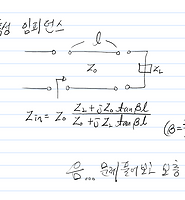 임피던스
l
Z₀
Z_L
Zin = Z₀ (Z_L + jZ₀ tanβl) / (Z₀ + jZ_L tanβl)
(β=
음... 문제풀어보는 오